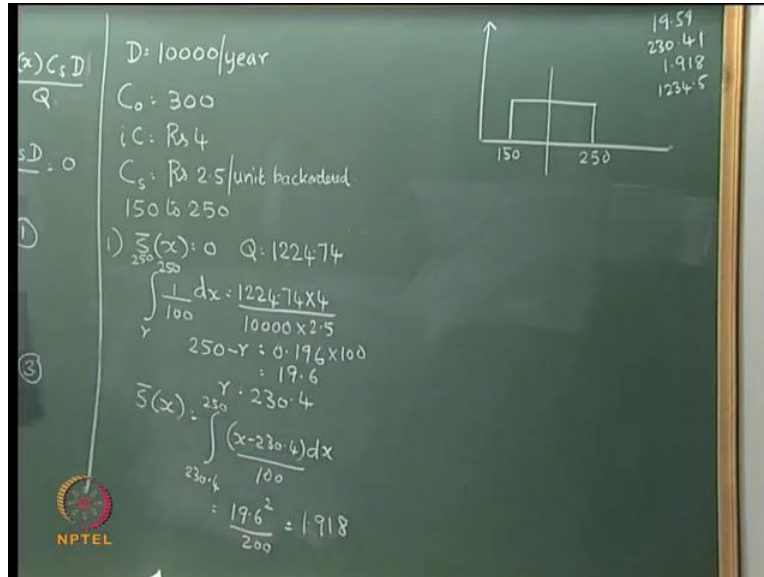 (x) Cs D
Q
sD = 0
①
③
D = 10000/year
Co = 300
iC = Rs 4
Cs = Rs 2.5/unit backordered
150 to 250
1) S̄(x) = 0 Q = 1224.74
∫ᵣ²⁵⁰ 1/100 dx = 1224.74 × 4 / 10000 × 2.5
250 - r = 0.196 × 100
= 19.6
r = 230.4
S̄(x) = ∫ 230.4 to 250 (x - 230.4) dx / 100
= 19.6² / 200 = 1.918
150 250
19.59
230.41
1.918
1234.5
NPTEL